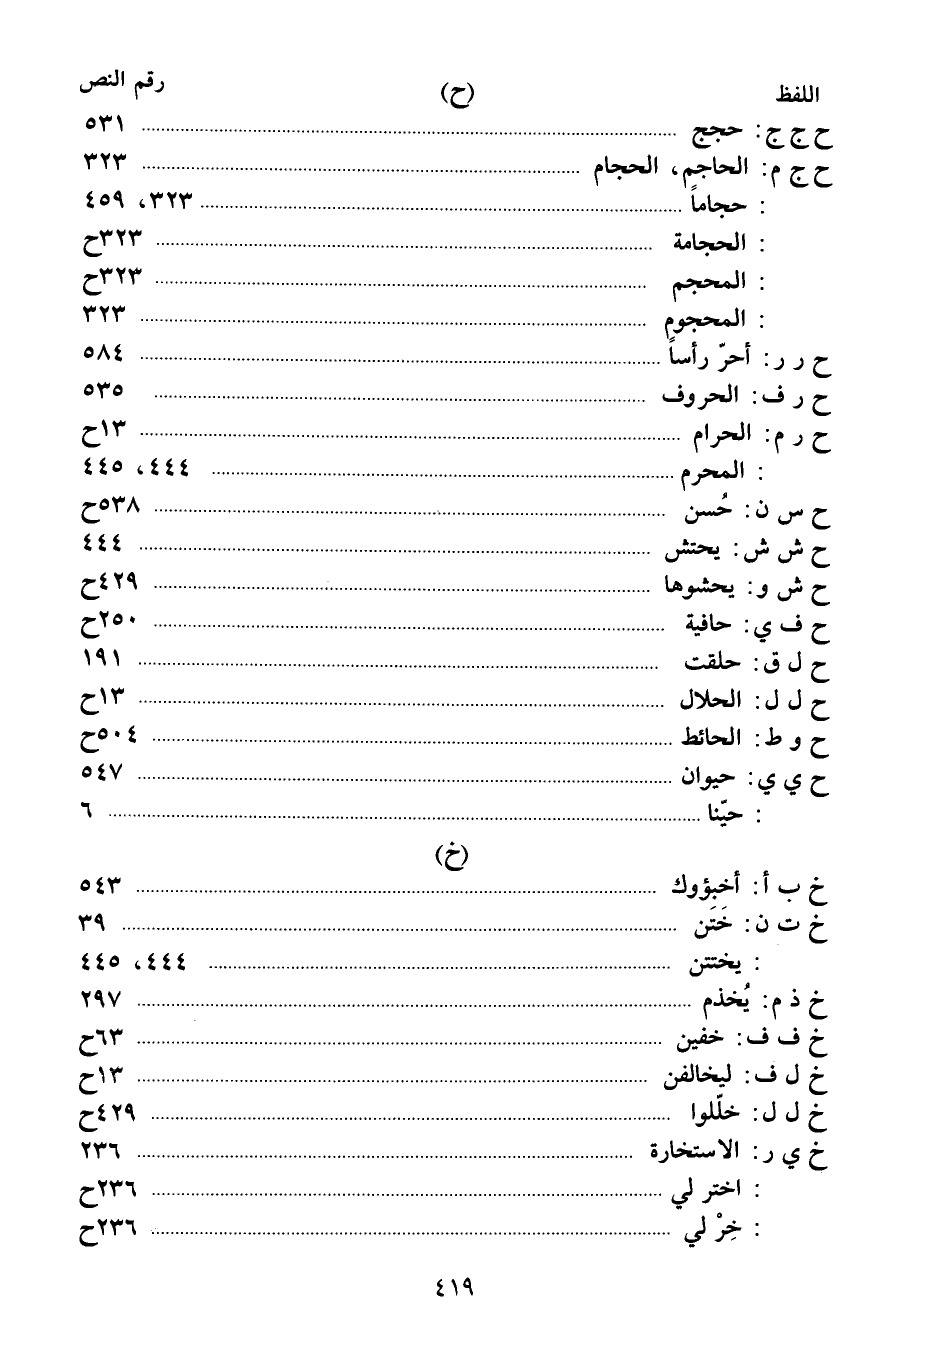 اللفظ (ح) رقم النص
ح ج ج: حجج ........ ٥٣١
ح ج م: الحاجم، الحجام ........ ٣٢٣
: حجاماً ........ ٣٢٣، ٤٥٩
: الحجامة ........ ٣٢٣ح
: المحجم ........ ٣٢٣ح
: المحجوم ........ ٣٢٣
ح ر ر: أحرّ رأساً ........ ٥٨٤
ح ر ف: الحروف ........ ٥٣٥
ح ر م: الحرام ........ ١٣ح
: المحرم ........ ٤٤٤، ٤٤٥
ح س ن: حُسن ........ ٥٣٨ح
ح ش ش: يحتش ........ ٤٤٤
ح ش و: يحشوها ........ ٤٢٩ح
ح ف ي: حافية ........ ٢٥٠ح
ح ل ق: حلقت ........ ١٩١
ح ل ل: الحلال ........ ١٣ح
ح و ط: الحائط ........ ٥٠٤ح
ح ي ي: حيوان ........ ٥٤٧
: حيّنا ........ ٦
(خ)
خ ب أ: أخبؤوك ........ ٥٤٣
خ ت ن: خَتَن ........ ٣٩
: يختتن ........ ٤٤٤، ٤٤٥
خ ذ م: يُخذم ........ ٢٩٧
خ ف ف: خفين ........ ٦٣ح
خ ل ف: ليخالفن ........ ١٣ح
خ ل ل: خلّلوا ........ ٤٢٩ح
خ ي ر: الاستخارة ........ ٢٣٦
: اختر لي ........ ٢٣٦ح
: خِرْ لي ........ ٢٣٦ح
٤١٩